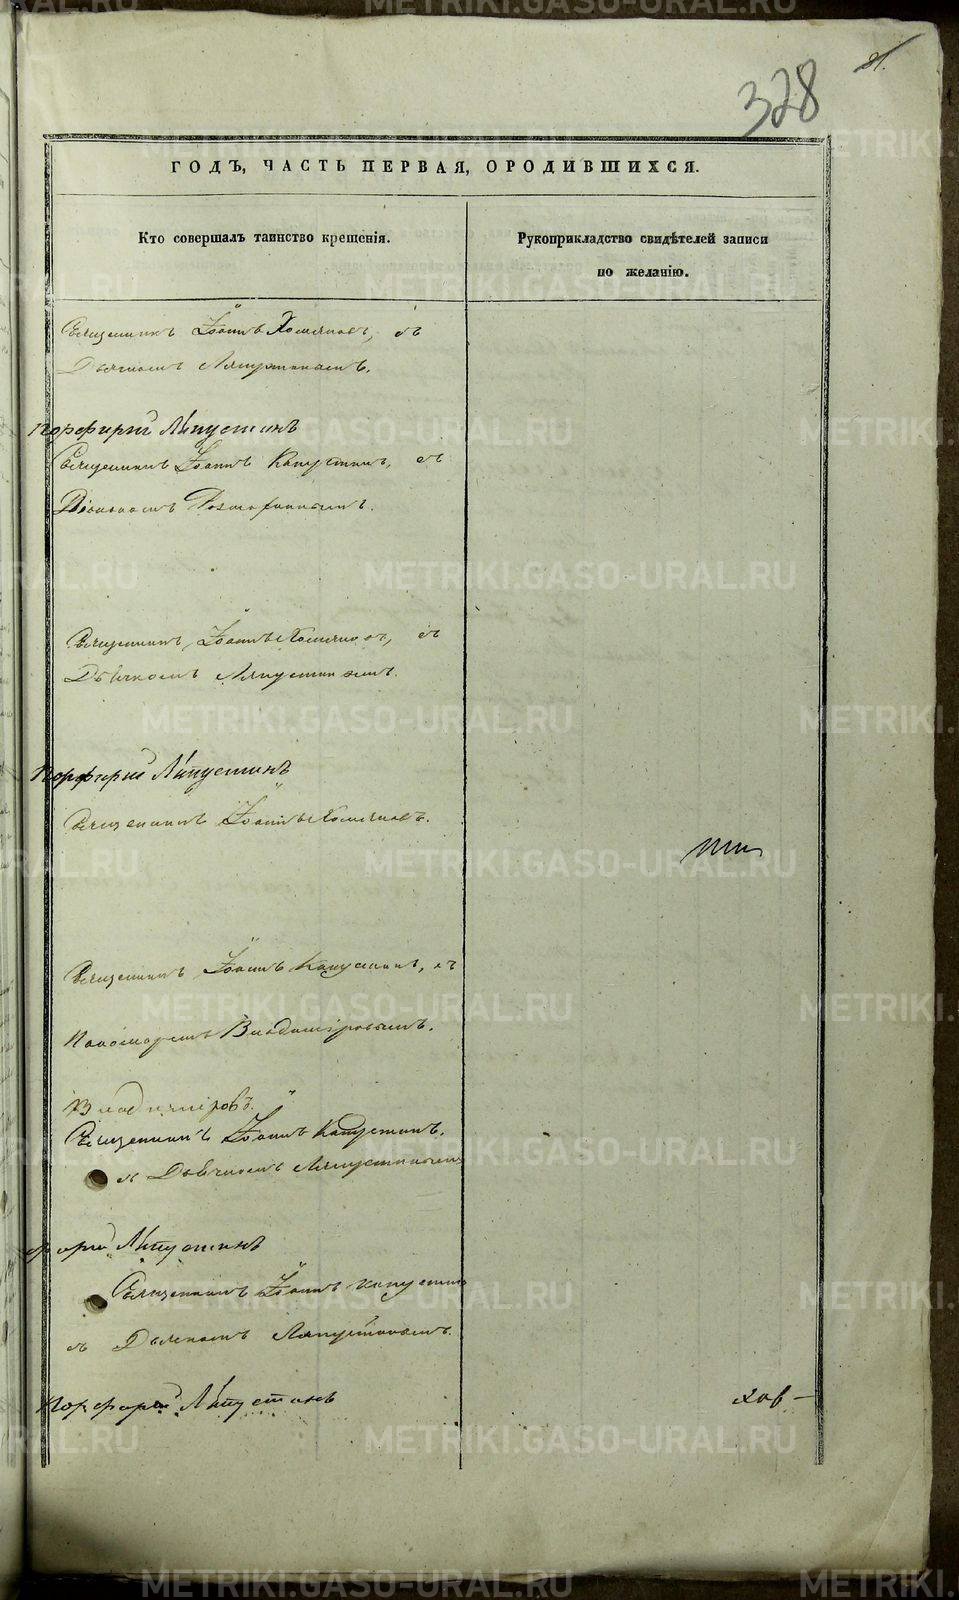 328
81.
ГОДЪ, ЧАСТЬ ПЕРВАЯ, О РОДИВШИХСЯ.
Кто совершалъ таинство крещенія.
Рукоприкладство свидѣтелей записи
по желанію.
Священникъ Іоаннъ Хомяковъ, съ
Дьячкомъ Ляпустинымъ.
Порфирій Ляпустинъ
Священникъ Іоаннъ Капустинъ, съ
Діакономъ
Священникъ Іоаннъ Хомяковъ, съ
Дьячкомъ Ляпустинымъ.
Порфирій Ляпустинъ
Священникъ Іоаннъ Хомяковъ.
Священникъ Іоаннъ Капустинъ, съ
Пономаремъ Владиміровымъ.
Владиміровъ.
Священникъ Іоаннъ Капустинъ,
съ Дьячкомъ Ляпустинымъ
фирій Ляпустинъ
Священникъ Іоаннъ Капустинъ
съ Дьячкомъ Ляпустинымъ.
Порфирій Ляпустинъ
ков-
METRIKI.GASO-URAL.RU